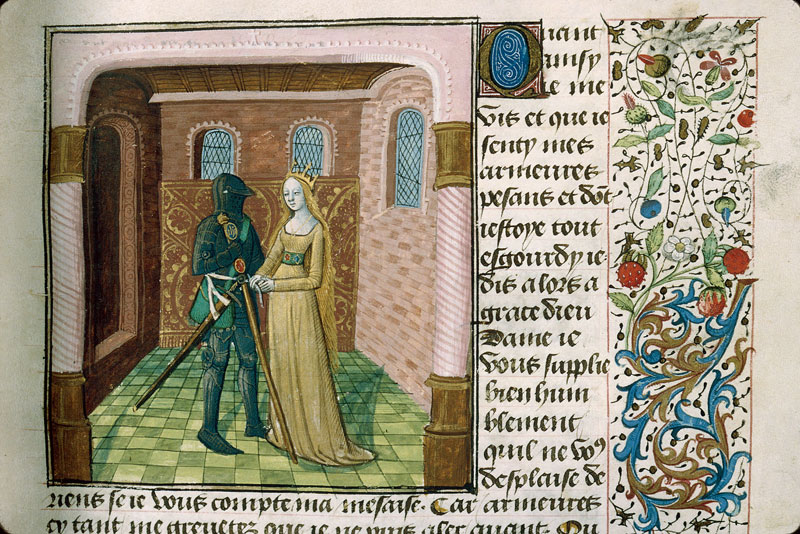 Quant
ainsy
ie me
vis et que ie
senty mes
armeures
pesans et dont
iestoye tout
esgourdy ie
dis alors a
grace dieu
Dame ie
vous supplie
bien hum
blement
quil ne vo9
desplaise de
riens se ie vous compte ma mesaise. Car armeures
cy tant me greuetez que ie ne puis aler auant. Ou